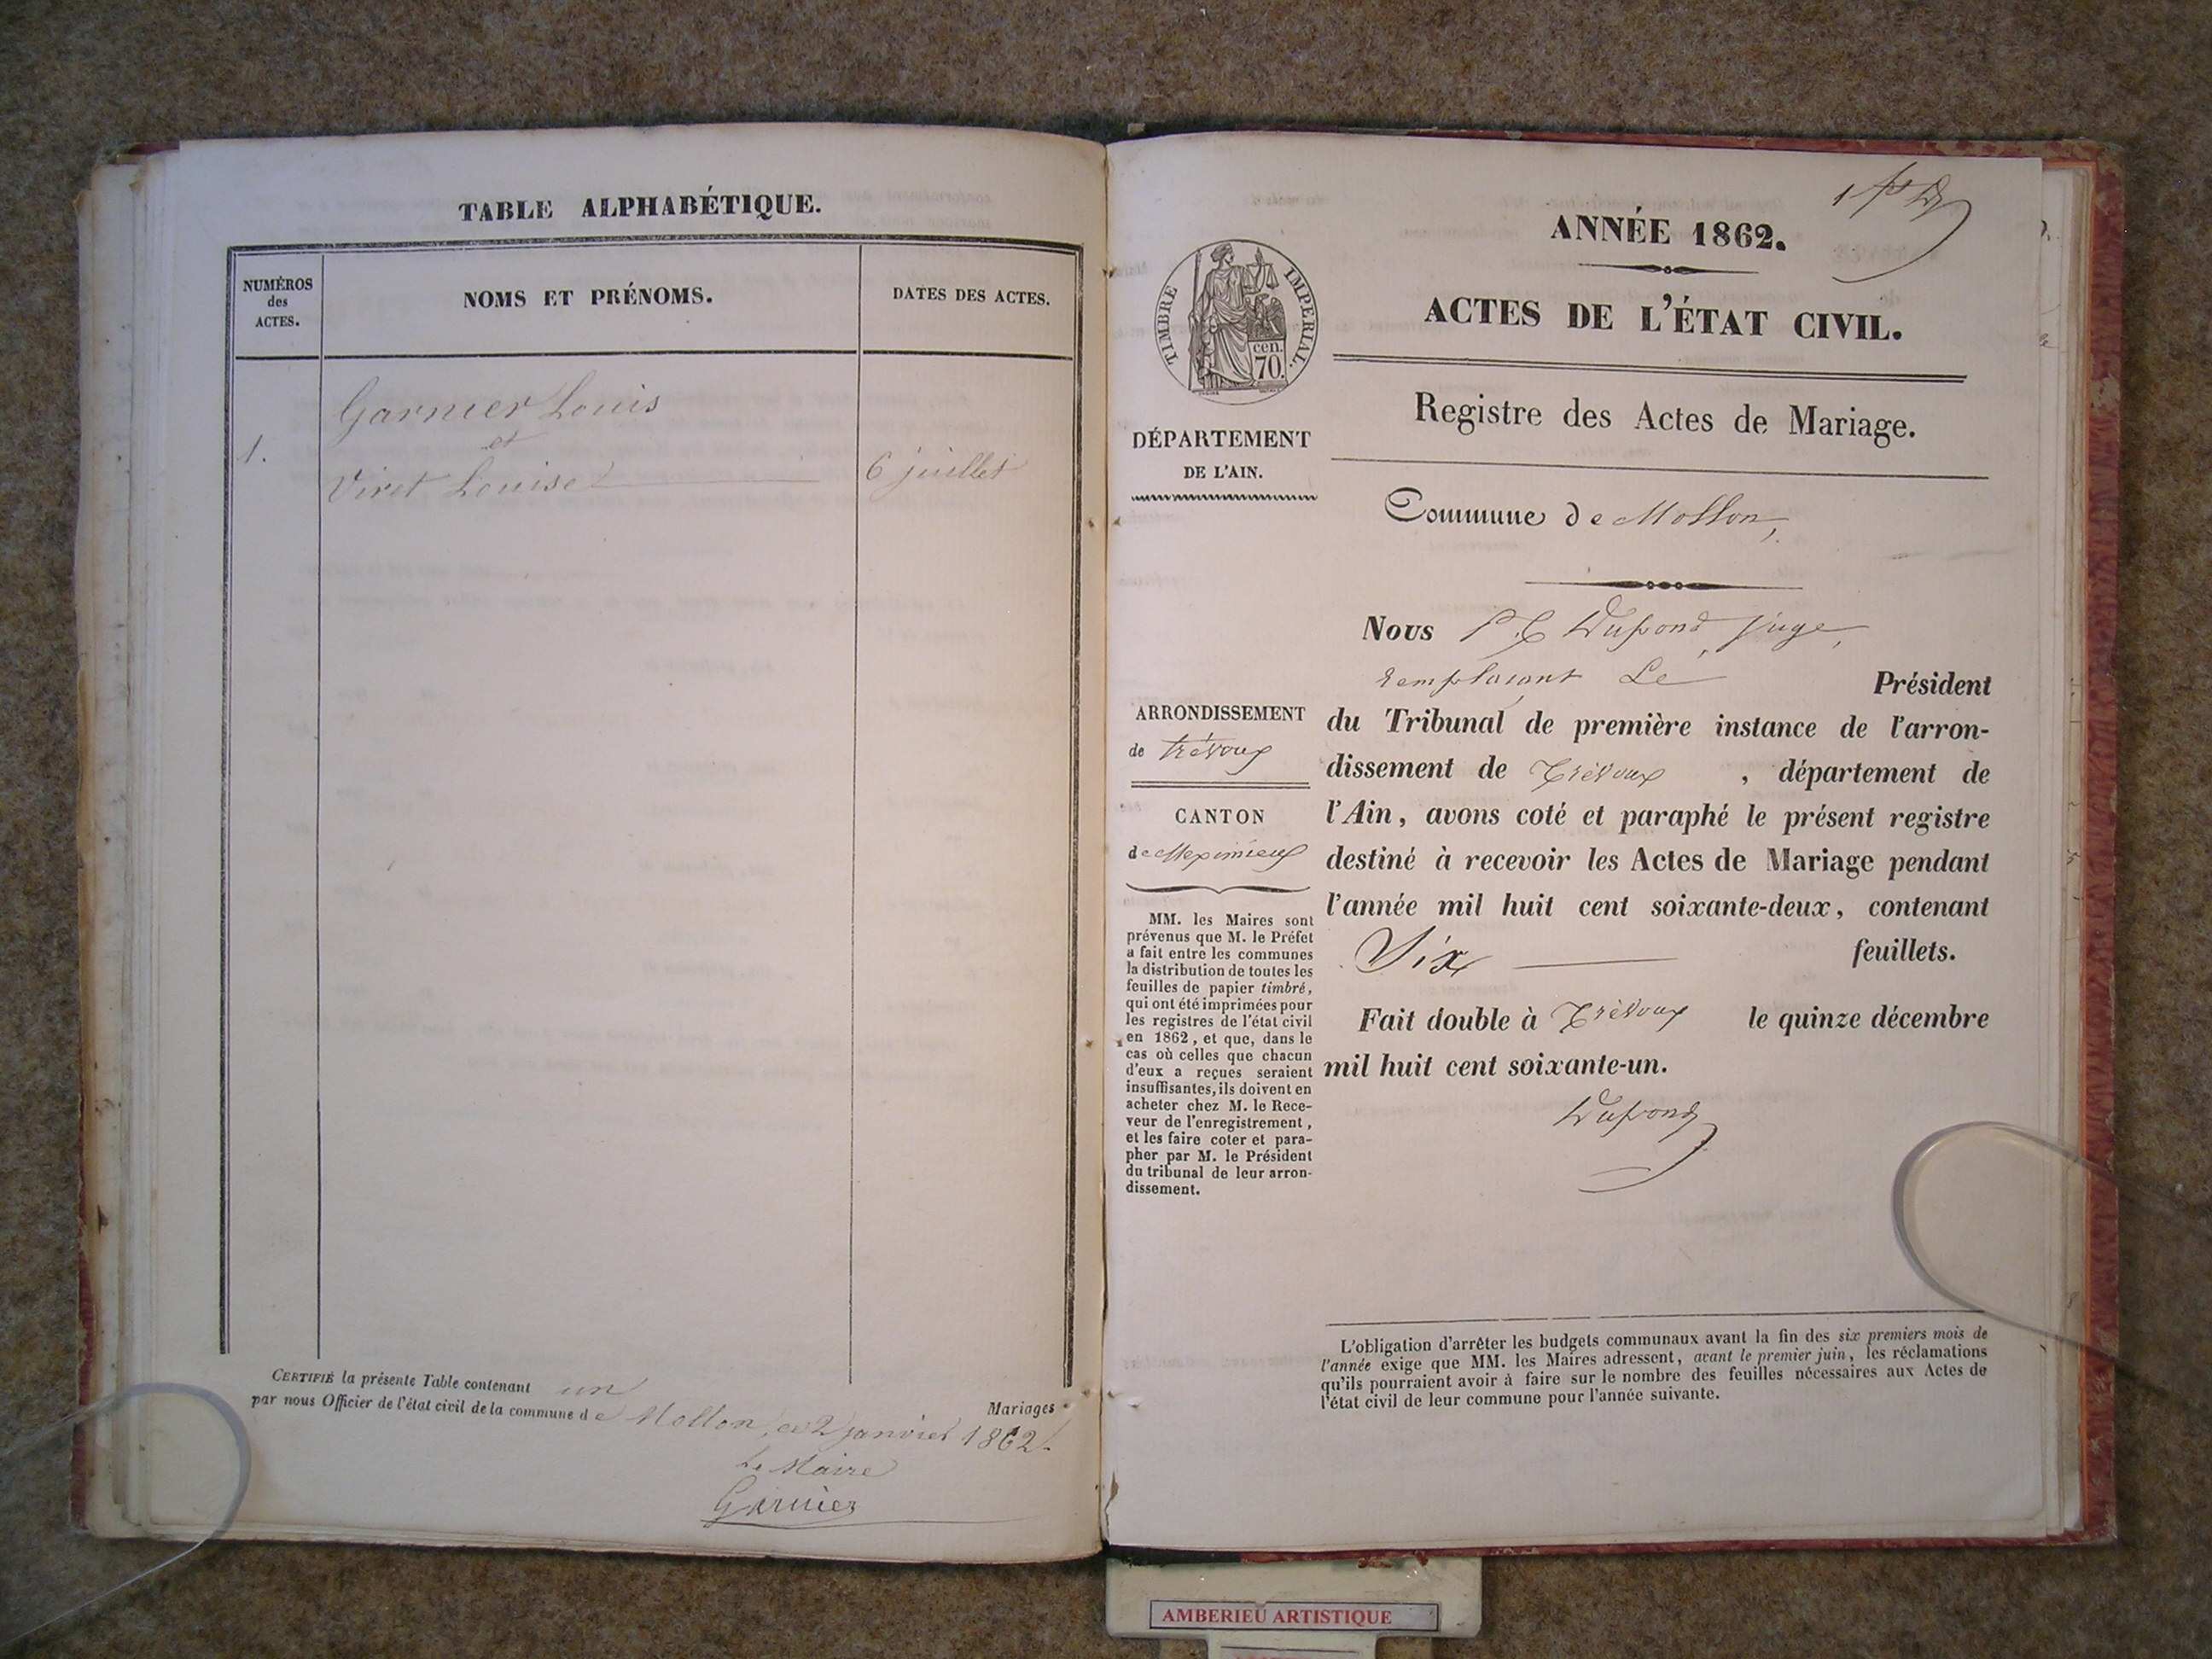 TABLE ALPHABÉTIQUE.
NUMÉROS
des
ACTES.
NOMS ET PRÉNOMS.
DATES DES ACTES.
Garnier Louis
et
1.
Viret Louise
6 juillet
CERTIFIÉ la présente Table contenant un
Mariages
par nous Officier de l'état civil de la commune de Mollon, ce 2 janvier 1862.
Le Maire
Garnier
ANNÉE 1862.
ACTES DE L'ÉTAT CIVIL.
TIMBRE IMPERIAL.
cen.
70.
Registre des Actes de Mariage.
DÉPARTEMENT
DE L'AIN.
Commune de Mollon,
Nous Dupond, juge,
remplaçant Le Président
du Tribunal de première instance de l'arron-
dissement de Trévoux, département de
l'Ain, avons coté et paraphé le présent registre
destiné à recevoir les Actes de Mariage pendant
l'année mil huit cent soixante-deux, contenant
Six feuillets.
Fait double à Trévoux le quinze décembre
mil huit cent soixante-un.
Dupond
ARRONDISSEMENT
de Trévoux
CANTON
de Meximieux
MM. les Maires sont
prévenus que M. le Préfet
a fait entre les communes
la distribution de toutes les
feuilles de papier timbré,
qui ont été imprimées pour
les registres de l'état civil
en 1862, et que, dans le
cas où celles que chacun
d'eux a reçues seraient
insuffisantes, ils doivent en
acheter chez M. le Rece-
veur de l'enregistrement,
et les faire coter et para-
pher par M. le Président
du tribunal de leur arron-
dissement.
L'obligation d'arrêter les budgets communaux avant la fin des six premiers mois de
l'année exige que MM. les Maires adressent, avant le premier juin, les réclamations
qu'ils pourraient avoir à faire sur le nombre des feuilles nécessaires aux Actes de
l'état civil de leur commune pour l'année suivante.
AMBERIEU ARTISTIQUE